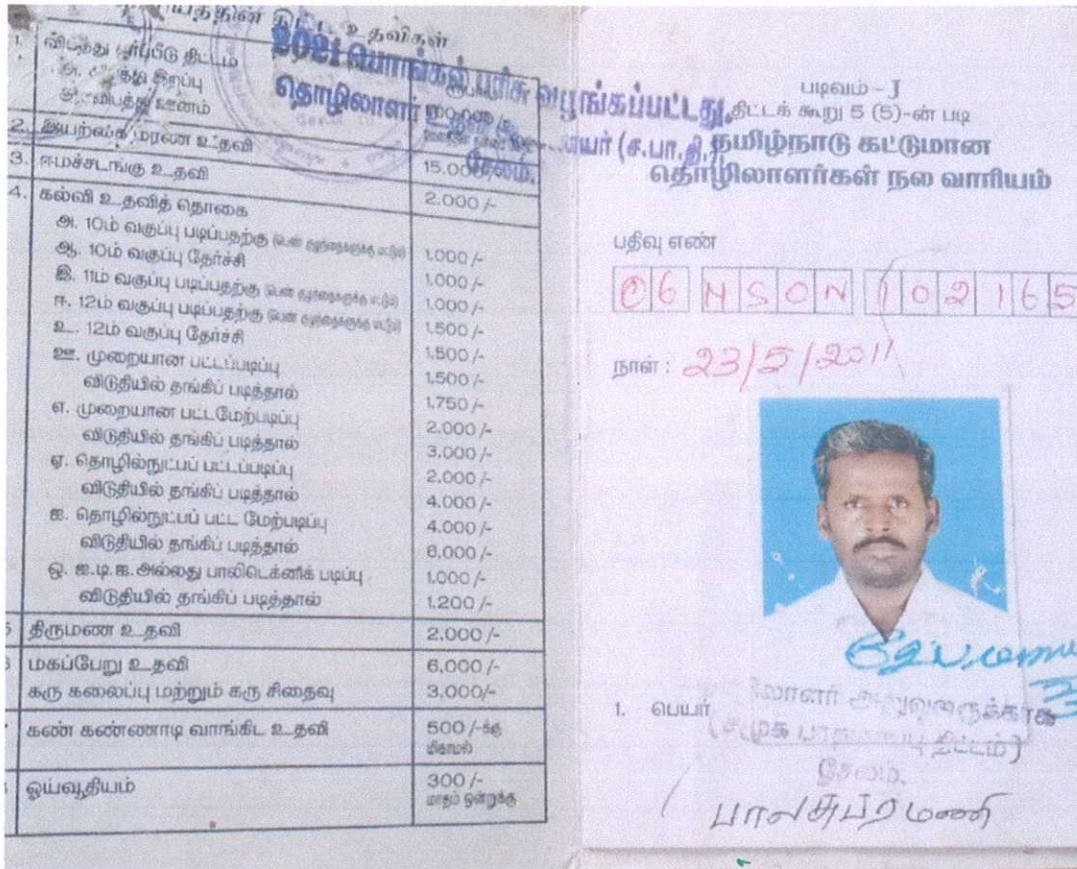 உதவிகள்
1. திட்டம்
இறப்பு
ஊனம்
2021 பொங்கல் பரிசு வழங்கப்பட்டது,
தொழிலாளர்
(ச.பா.தி.)
சேலம்.
2. இயற்கை மரண உதவி 15.000/-
3. ஈமச்சடங்கு உதவி 2.000/-
4. கல்வி உதவித் தொகை
அ. 10ம் வகுப்பு படிப்பதற்கு (பெண் குழந்தைகளுக்கு மட்டும்) 1,000/-
ஆ. 10ம் வகுப்பு தேர்ச்சி 1,000/-
இ. 11ம் வகுப்பு படிப்பதற்கு (பெண் குழந்தைகளுக்கு மட்டும்) 1,000/-
ஈ. 12ம் வகுப்பு படிப்பதற்கு (பெண் குழந்தைகளுக்கு மட்டும்) 1,500/-
உ. 12ம் வகுப்பு தேர்ச்சி 1,500/-
ஊ. முறையான பட்டப்படிப்பு 1,500/-
விடுதியில் தங்கிப் படித்தால் 1,750/-
எ. முறையான பட்டமேற்படிப்பு 2.000/-
விடுதியில் தங்கிப் படித்தால் 3.000/-
ஏ. தொழில்நுட்பப் பட்டப்படிப்பு 2.000/-
விடுதியில் தங்கிப் படித்தால் 4.000/-
ஐ. தொழில்நுட்பப் பட்ட மேற்படிப்பு 4.000/-
விடுதியில் தங்கிப் படித்தால் 6,000/-
ஓ. ஐ.டி.ஐ.அல்லது பாலிடெக்னிக் படிப்பு 1,000/-
விடுதியில் தங்கிப் படித்தால் 1.200/-
திருமண உதவி 2.000/-
மகப்பேறு உதவி 6,000/-
கரு கலைப்பு மற்றும் கரு சிதைவு 3.000/-
கண் கண்ணாடி வாங்கிட உதவி 500/-க்கு மிகாமல்
ஓய்வூதியம் 300/-
மாதம் ஒன்றுக்கு
படிவம் - J
திட்டக் கூறு 5 (5)-ன் படி
தமிழ்நாடு கட்டுமான
தொழிலாளர்கள் நல வாரியம்
பதிவு எண்
06 NSON 102165
நாள் : 23/5/2011
1. பெயர்
(சமூக பாதுகாப்பு திட்டம்)
சேலம்.
பாலசுப்ரமணி